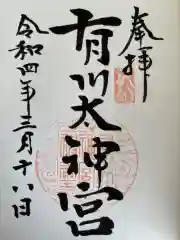 奉拝
有川太神宮
令和四年三月十八日